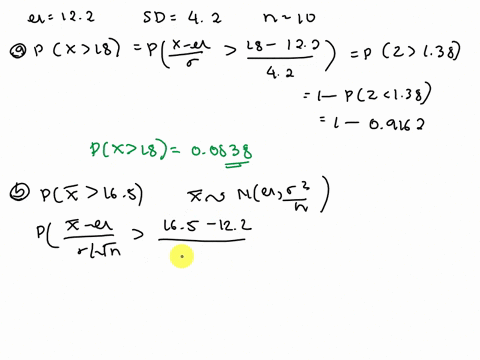 μ = 12.2 SD = 4.2 n = 10
ⓐ P(X > 18) = P(X-μ/σ > 18-12.2/4.2) = P(Z > 1.38)
= 1 - P(Z < 1.38)
= 1 - 0.9162
P(X > 18) = 0.0838
ⓑ P(x̄ > 16.5) x̄ ~ N(μ, σ²/n)
P(x̄-μ/σ/√n > 16.5-12.2